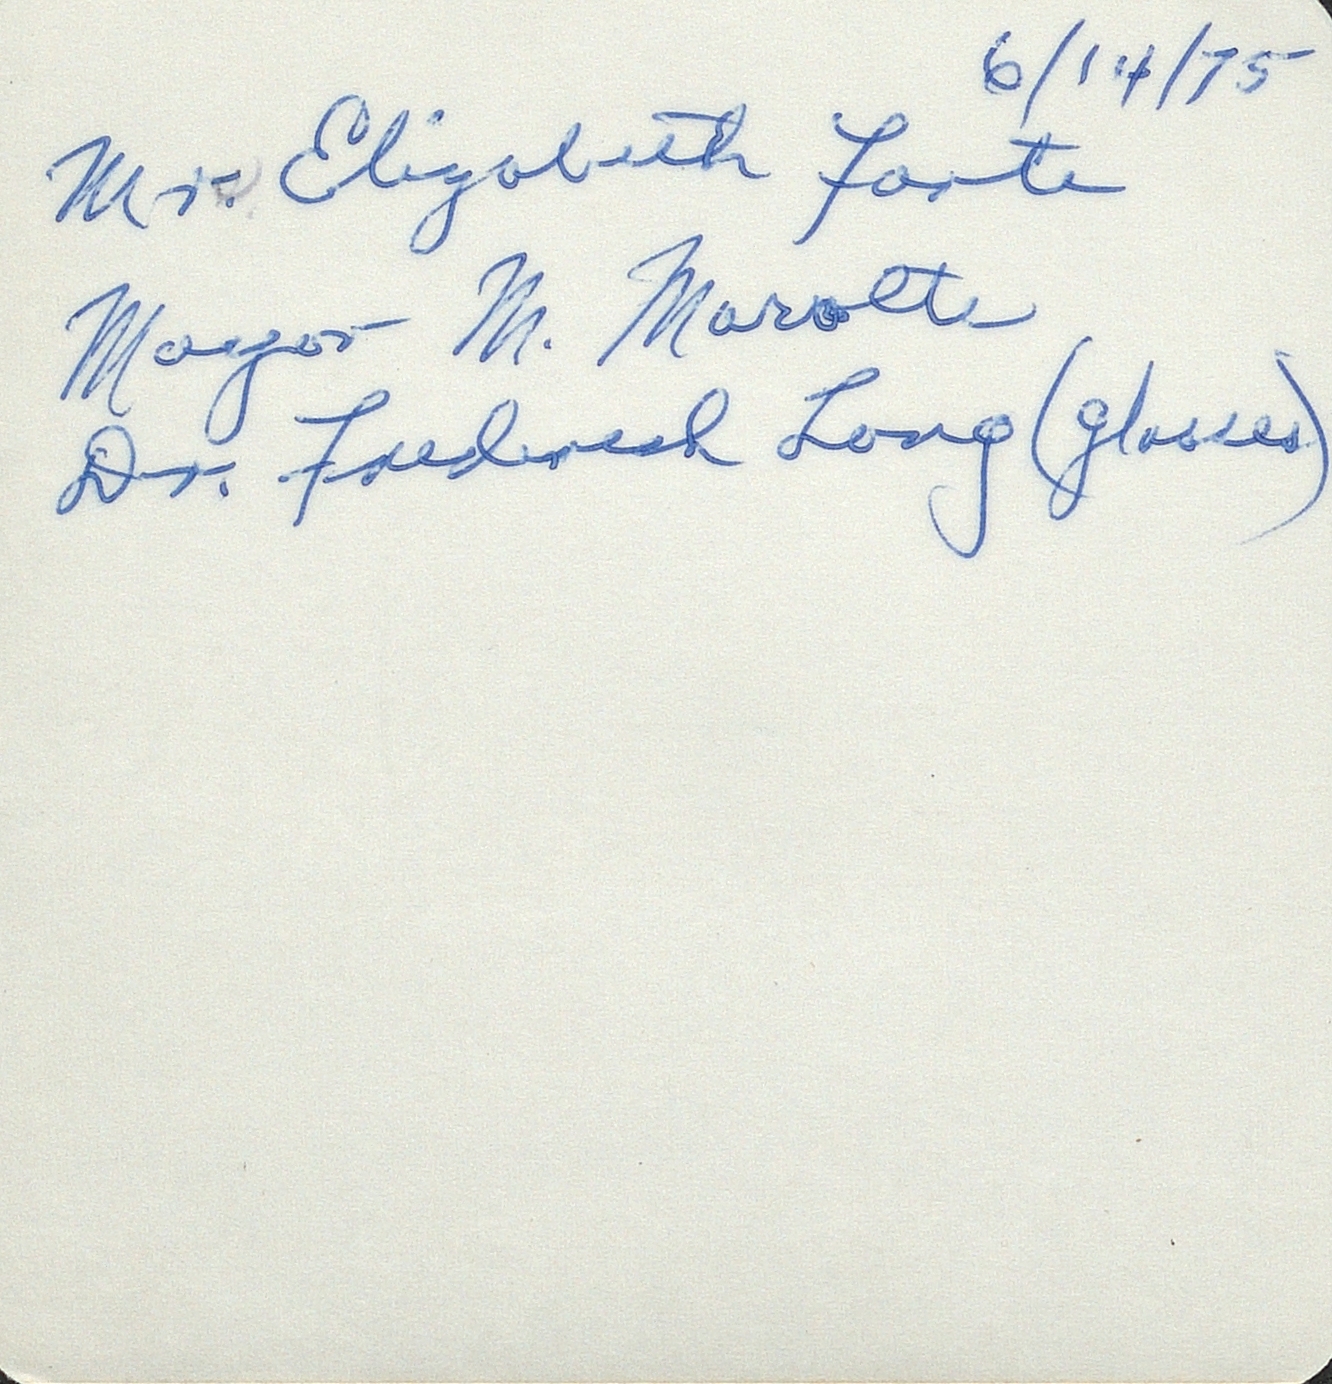 6/14/75
Mr. Elizabeth Forte
Mayor M. Marotte
Dr. Frederick Long (glasses)